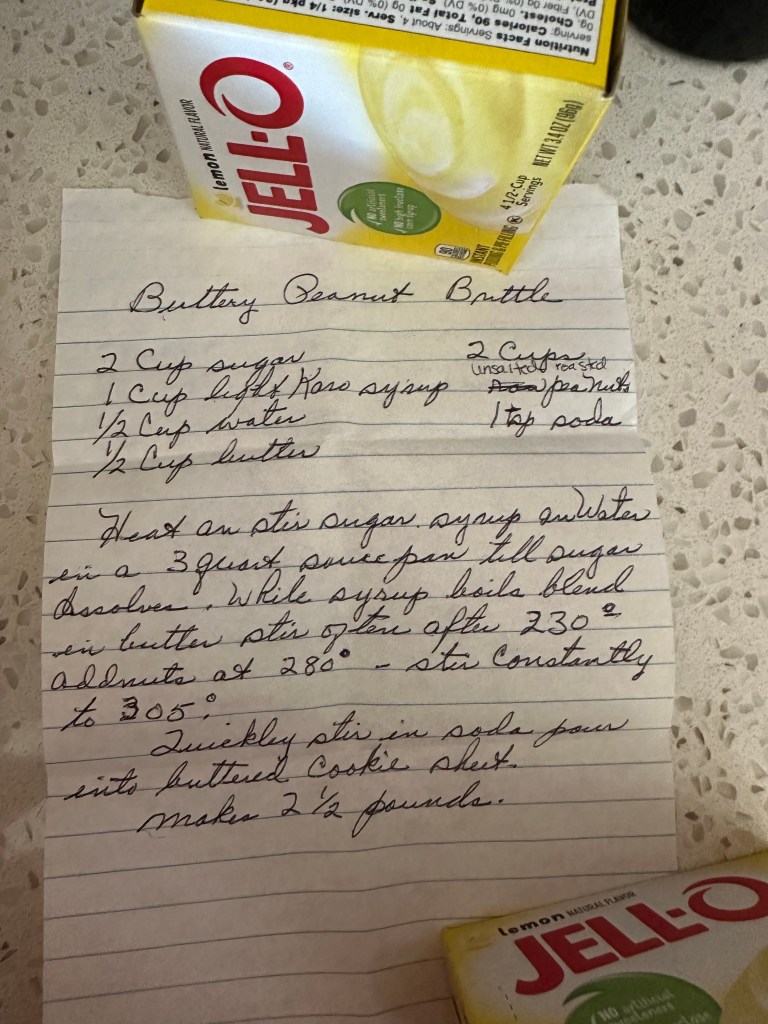 Nutrition Facts Servings: About 4, Serv. size: 1/4 pkg
serving: Calories 90, Total Fat 0g (0% DV)
0g, Cholest. 0mg (0% DV)
DV), Fiber 0g (0%
lemon NATURAL FLAVOR
JELL-O®
NO artificial sweeteners
NO high fructose corn syrup
90
INSTANT
PUDDING & PIE FILLING
4 1/2-Cup Servings
NET WT 3.4 OZ (96g)
Buttery Peanut Brittle
2 Cup sugar
1 Cup light Karo syrup
1/2 Cup water
1/2 Cup butter
2 Cups
unsalted roasted
peanuts
1 tsp soda
Heat an stir sugar. syrup an Water
in a 3 quart sauce pan till sugar
dissolves. While syrup boils blend
in butter stir often after 230°
add nuts at 280° - stir Constantly
to 305°.
Quickley stir in soda pour
into buttered Cookie sheet.
makes 2 1/2 pounds.
lemon NATURAL FLAVOR
JELL-O
NO artificial